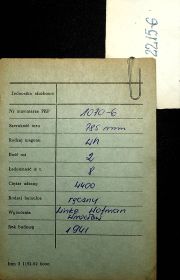 2215-6
Jednostka służbowa
Nr inwentarza PKP 1070-6
Szerokość toru 785 mm
Rodzaj wagonu
Ilość osi 2
Ładowność w t. 8
Ciężar własny 4400
Rodzaj hamulca ręczny
Wytwórnia Linke Hofman
Wrocław
Rok budowy 1941